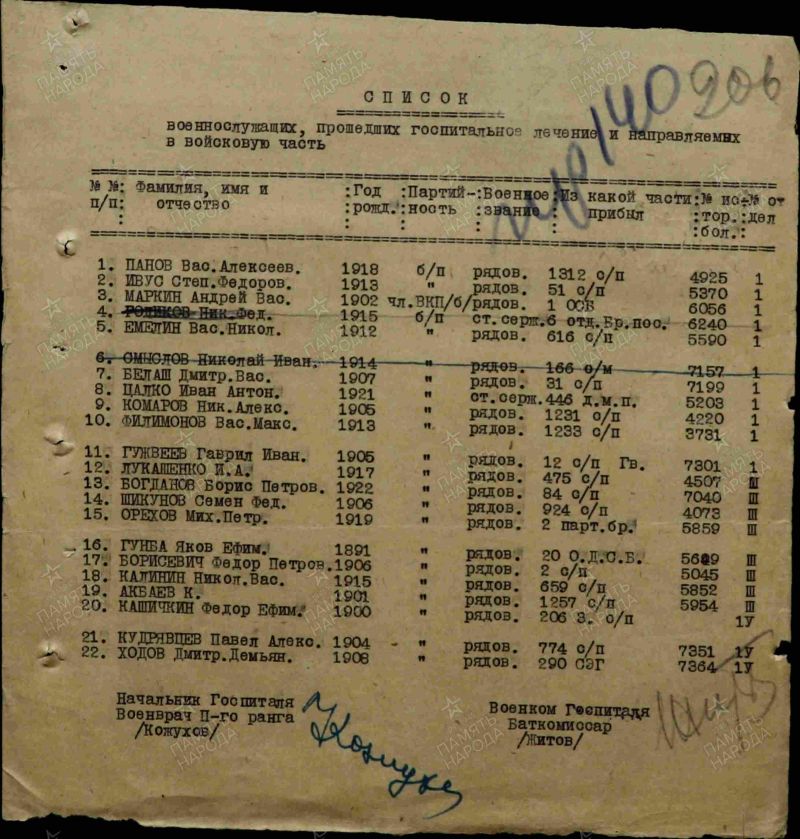 206
СПИСОК
военнослужащих, прошедших госпитальное лечение и направляемых
в войсковую часть
№ №: Фамилия, имя и :Год :Партий-:Военное:Из какой части:№ ис-№ от
п/п: отчество :рожд.:ность :звание : прибыл :тор.:дел
:бол.:
1. ПАНОВ Вас.Алексеев. 1918 б/п рядов. 1312 с/п 4925 1
2. ИВУС Степ.Федоров. 1913 " рядов. 51 с/п 5370 1
3. МАРКИН Андрей Вас. 1902 чл.ВКП/б/рядов. 1 ОСБ 6056 1
4. РОДИКОВ Ник.Фед. 1915 б/п ст.серж.6 отд.Бр.пос. 6240 1
5. ЕМЕЛИН Вас.Никол. 1912 " рядов. 616 с/п 5590 1
6. СМЫСЛОВ Николай Иван. 1914 " рядов. 166 о/м 7157 1
7. БЕЛАШ Дмитр.Вас. 1907 " рядов. 31 с/п 7199 1
8. ЦАЛКО Иван Антон. 1921 " ст.серж.446 д.м.п. 5203 1
9. КОМАРОВ Ник.Алекс. 1905 " рядов. 1231 с/п 4220 1
10. ФИЛИМОНОВ Вас.Макс. 1913 " рядов. 1233 с/п 3731 1
11. ГУЖВЕЕВ Гаврил Иван. 1905 " рядов. 12 с/п Гв. 7301 1
12. ЛУКАШЕНКО И.А. 1917 " рядов. 475 с/п 4507 Ш
13. БОГДАНОВ Борис Петров. 1922 " рядов. 84 с/п 7040 Ш
14. ШИКУНОВ Семен Фед. 1906 " рядов. 924 с/п 4073 Ш
15. ОРЕХОВ Мих.Петр. 1919 " рядов. 2 парт.бр. 5859 Ш
16. ГУНБА Яков Ефим. 1891 " рядов. 20 О.Д.С.Б. Ш
17. БОРИСЕВИЧ Федор Петров.1906 " рядов. 2 с/п 5045 Ш
18. КАЛИНИН Никол.Вас. 1915 " рядов. 659 с/п 5852 Ш
19. АКБАЕВ К. 1901 " рядов. 1257 с/п 5954 Ш
20. КАШИЧКИН Федор Ефим. 1900 " рядов. 206 З. с/п 1У
21. КУДРЯВЦЕВ Павел Алекс. 1904 " рядов. 774 с/п 7351 1У
22. ХОДОВ Дмитр.Демьян. 1908 " рядов. 290 СЭГ 7364 1У
Начальник Госпиталя
Военврач П-го ранга
/Кожухов/
Военком Госпиталя
Баткомиссар
/Житов/
ПАМЯТЬ НАРОДА